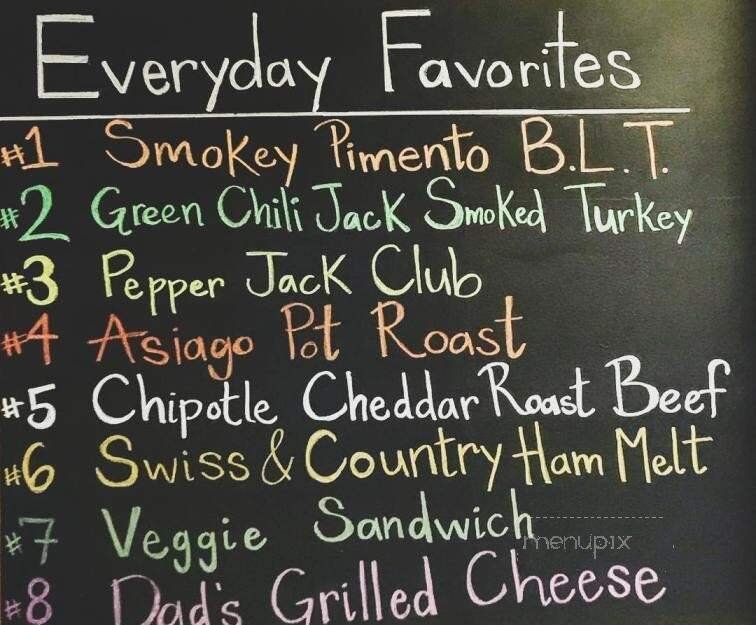 Everyday Favorites
#1 Smokey Pimento B.L.T.
#2 Green Chili Jack Smoked Turkey
#3 Pepper Jack Club
#4 Asiago Pot Roast
#5 Chipotle Cheddar Roast Beef
#6 Swiss & Country Ham Melt
#7 Veggie Sandwich
menupix
#8 Dad's Grilled Cheese